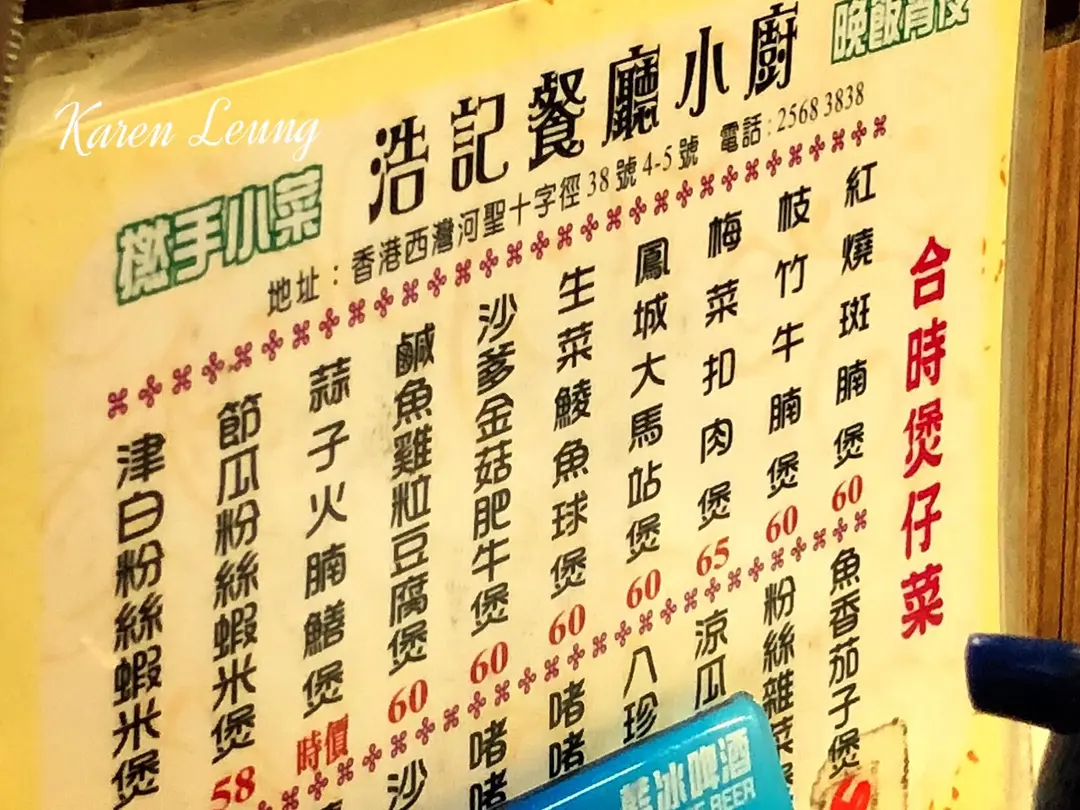 Karen Leung
浩記餐廳小廚
晚飯宵夜
撚手小菜
地址：香港西灣河聖十字徑38號4-5號 電話：2568 3838
合時煲仔菜
紅燒斑腩煲 60
枝竹牛腩煲 60
梅菜扣肉煲 65
鳳城大馬站煲 60
生菜鯪魚球煲 60
沙爹金菇肥牛煲 60
鹹魚雞粒豆腐煲 60
蒜子火腩鱔煲 時價
節瓜粉絲蝦米煲 58
津白粉絲蝦米煲
魚香茄子煲
粉絲雜菜煲
涼瓜
八珍
啫啫
啫啫
沙
冰啤酒
BEER